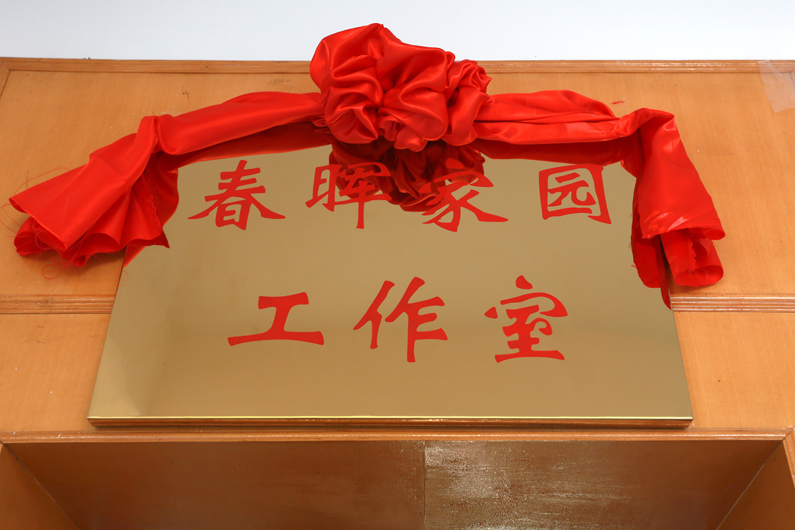 春晖家园
工作室